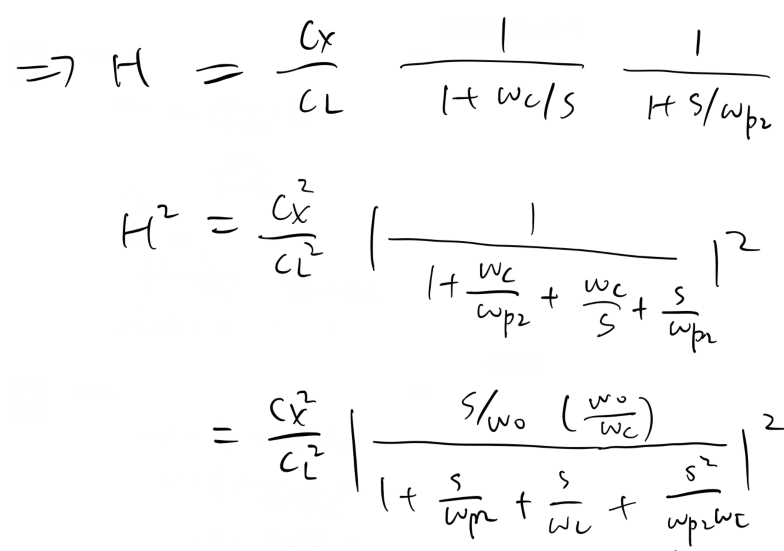 ⇒ H = \frac{C_X}{C_L} \frac{1}{1+ω_C/s} \frac{1}{1+s/ω_{p2}}
H^2 = \frac{C_X^2}{C_L^2} |\frac{1}{1+\frac{ω_C}{ω_{p2}}+\frac{ω_C}{s}+\frac{s}{ω_{p2}}}|^2
= \frac{C_X^2}{C_L^2} |\frac{s/ω_0 (\frac{ω_0}{ω_C})}{1+\frac{s}{ω_{p2}}+\frac{s}{ω_C}+\frac{s^2}{ω_{p2}ω_C}}|^2